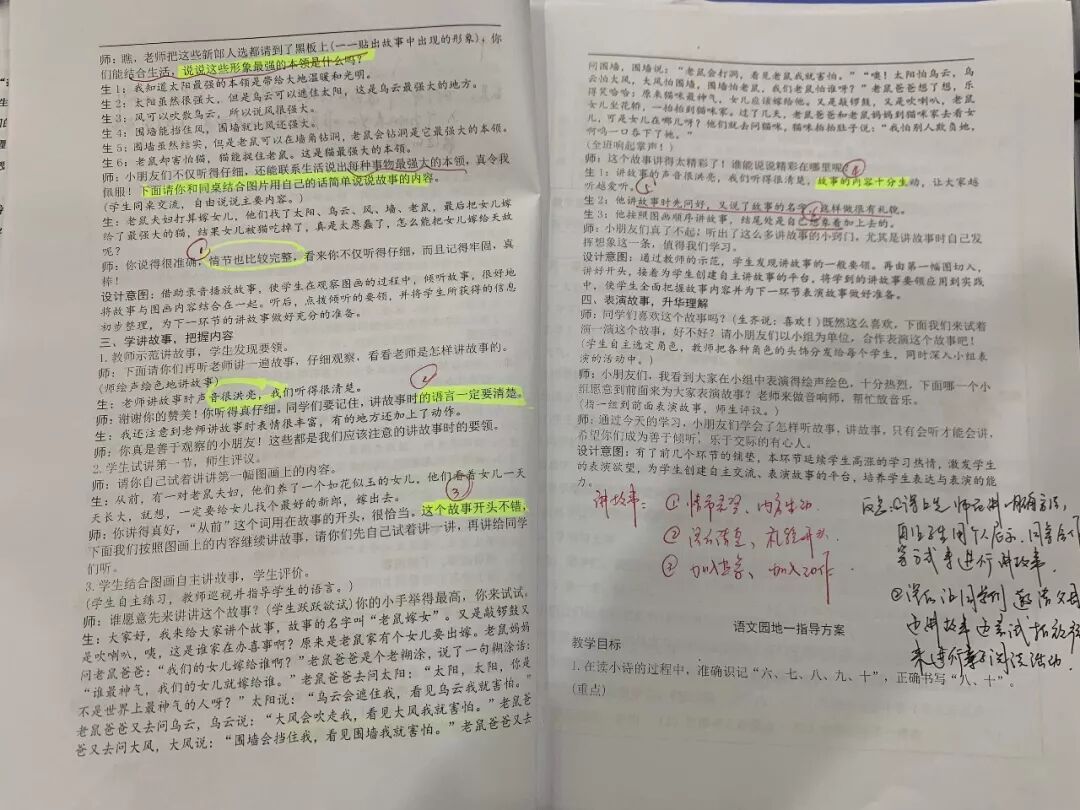 师：瞧，老师把这些新郎人选都请到了黑板上(一一贴出故事中出现的形象)，你
们能结合生活，说说这些形象最强的本领是什么吗？
生1：我知道太阳最强的本领是带给大地温暖和光明。
生2：太阳虽然很强大，但是乌云可以遮住太阳，这是乌云最强大的地方。
生3：风可以吹散乌云，所以说风很强大。
生4：围墙能挡住风，围墙就比风还强大。
生5：围墙虽然结实，但是老鼠可以在墙角钻洞，老鼠会钻洞是它最强大的本领。
生6：老鼠却害怕猫，猫能捉住老鼠。这是猫最强大的本领。
师：小朋友们不仅听得仔细，还能联系生活说出每种事物最强大的本领，真令我
佩服！下面请你和同桌结合图片用自己的话简单说说故事的内容。
(学生同桌交流，自由说说主要内容。)
生：老鼠夫妇打算嫁女儿，他们找了太阳、乌云、风、墙、老鼠，最后把女儿嫁
给了最强大的猫，结果女儿被猫吃掉了，真是太愚蠢了，怎么能把女儿嫁给天敌
呢？
①
师：你说得很准确，情节也比较完整，看来你不仅听得仔细，而且记得牢固，真
棒！
设计意图：借助录音播放故事，使学生在观察图画的过程中，倾听故事，很好地
将故事与图画内容结合在一起。听后，点拨倾听的要领，并将学生所获得的信息
初步整理，为下一环节的讲故事做好充分的准备。
三、学讲故事，把握内容
1. 教师示范讲故事，学生发现要领。
师：下面请你们再听老师讲一遍故事，仔细观察，看看老师是怎样讲故事的。
(师绘声绘色地讲故事)
②
生：老师讲故事时声音很洪亮，我们听得很清楚。
师：谢谢你的赞美！你听得真仔细。同学们要记住，讲故事时的语言一定要清楚。
生：我还注意到老师讲故事时表情很丰富，有的地方还加上了动作。
师：你真是善于观察的小朋友！这些都是我们应该注意的讲故事时的要领。
2. 学生试讲第一节，师生评议。
师：请你自己试着讲讲第一幅图画上的内容。
生：从前，有一对老鼠夫妇，他们养了一个如花似玉的女儿，他们看着女儿一天
天长大，就想，一定要给女儿找个最好的新郎，嫁出去。
③
师：你讲得真好，“从前”这个词用在故事的开头，很恰当。这个故事开头不错，
下面我们按照图画上的内容继续讲故事，请你们先自己试着讲一讲，再讲给同学
们听。
3. 学生结合图画自主讲故事，学生评价。
(学生自主练习，教师巡视并指导学生的语言。)
师：谁愿意先来讲讲这个故事？(学生跃跃欲试)你的小手举得最高，你来试试。
生：大家好，我来给大家讲个故事，故事的名字叫“老鼠嫁女”。又是敲锣鼓又
是吹喇叭，咦，这是谁家在办喜事啊？原来是老鼠家有个女儿要出嫁。老鼠妈妈
问老鼠爸爸：“我们的女儿嫁给谁啊？”老鼠爸爸是个老糊涂，说了一句糊涂话：
“谁最神气，我们的女儿就嫁给谁。”老鼠爸爸去问太阳：“太阳，太阳，你是
不是世界上最神气的人呀？”太阳说：“乌云会遮住我，看见乌云我就害怕。”
老鼠爸爸又去问乌云，乌云说：“大风会吹走我，看见大风我就害怕。”老鼠爸
爸又去问大风，大风说：“围墙会挡住我，看见围墙我就害怕。”老鼠爸爸又去
问围墙，围墙说：“老鼠会打洞，看见老鼠我就害怕。”“噢！太阳怕乌云，乌
云怕大风，大风怕围墙，围墙怕老鼠，我们老鼠怕谁呀？”老鼠爸爸想了想，乐
得笑哈哈：原来猫咪最神气，女儿应该嫁给他。又是敲锣鼓，又是吹喇叭，老鼠
女儿坐花轿，一抬抬到猫咪家。过了几天，老鼠爸爸和老鼠妈妈到猫咪家去看女
儿，可是女儿在哪儿呀？他们就去问猫咪，猫咪拍拍肚子说：“我怕别人欺负她，
啊呜一口吞下了她。”
(全班响起掌声！)
师：这个故事讲得太精彩了！谁能说说精彩在哪里呢？
④
生1：讲故事的声音很洪亮，我们听得很清楚，故事的内容十分生动，让大家越
听越爱听。
⑤
生2：他讲故事时先问好，又说了故事的名字，这样做很有礼貌。
生3：他按照图画顺序讲故事，结尾处是自己想象着加上去的。
师：小朋友们真了不起！听出了这么多讲故事的小窍门，尤其是讲故事时自己发
挥想象这一条，值得我们学习。
设计意图：通过教师的示范，学生发现讲故事的一般要领。再由第一幅图切入，
讲好开头，接着为学生创建自主讲故事的平台，将学到的讲故事要领应用到实践
中，使学生全面把握故事内容并为下一环节表演故事做好准备。
四、表演故事，升华理解
师：同学们喜欢这个故事吗？(生齐说：喜欢！)既然这么喜欢，下面我们来试着
演一演这个故事，好不好？请小朋友们以小组为单位，合作表演这个故事吧！
(学生自主选定角色，教师把各种角色的头饰分发给每个学生，同时深入小组表
演的活动中。)
师：小朋友们，我看到大家在小组中表演得绘声绘色，十分热烈，下面哪一个小
组愿意到前面来为大家表演故事？老师来做音响师，帮忙放音乐。
(指一组到前面表演故事，师生评议。)
师：通过今天的学习，小朋友们学会了怎样听故事，讲故事，只有会听才能会讲，
希望你们成为善于倾听，乐于交际的有心人。
设计意图：有了前几个环节的铺垫，本环节延续学生高涨的学习热情，激发学生
的表演欲望，为学生创建自主交流、表演故事的平台，培养学生表达与表演的能
力。
讲故事：①情节完整、内容生动
②语言清楚、礼貌开头
③加入想象、加入动作
语文园地一指导方案
教学目标
1. 在读小诗的过程中，准确识记“六、七、八、九、十”，正确书写“八、十”。
(重点)